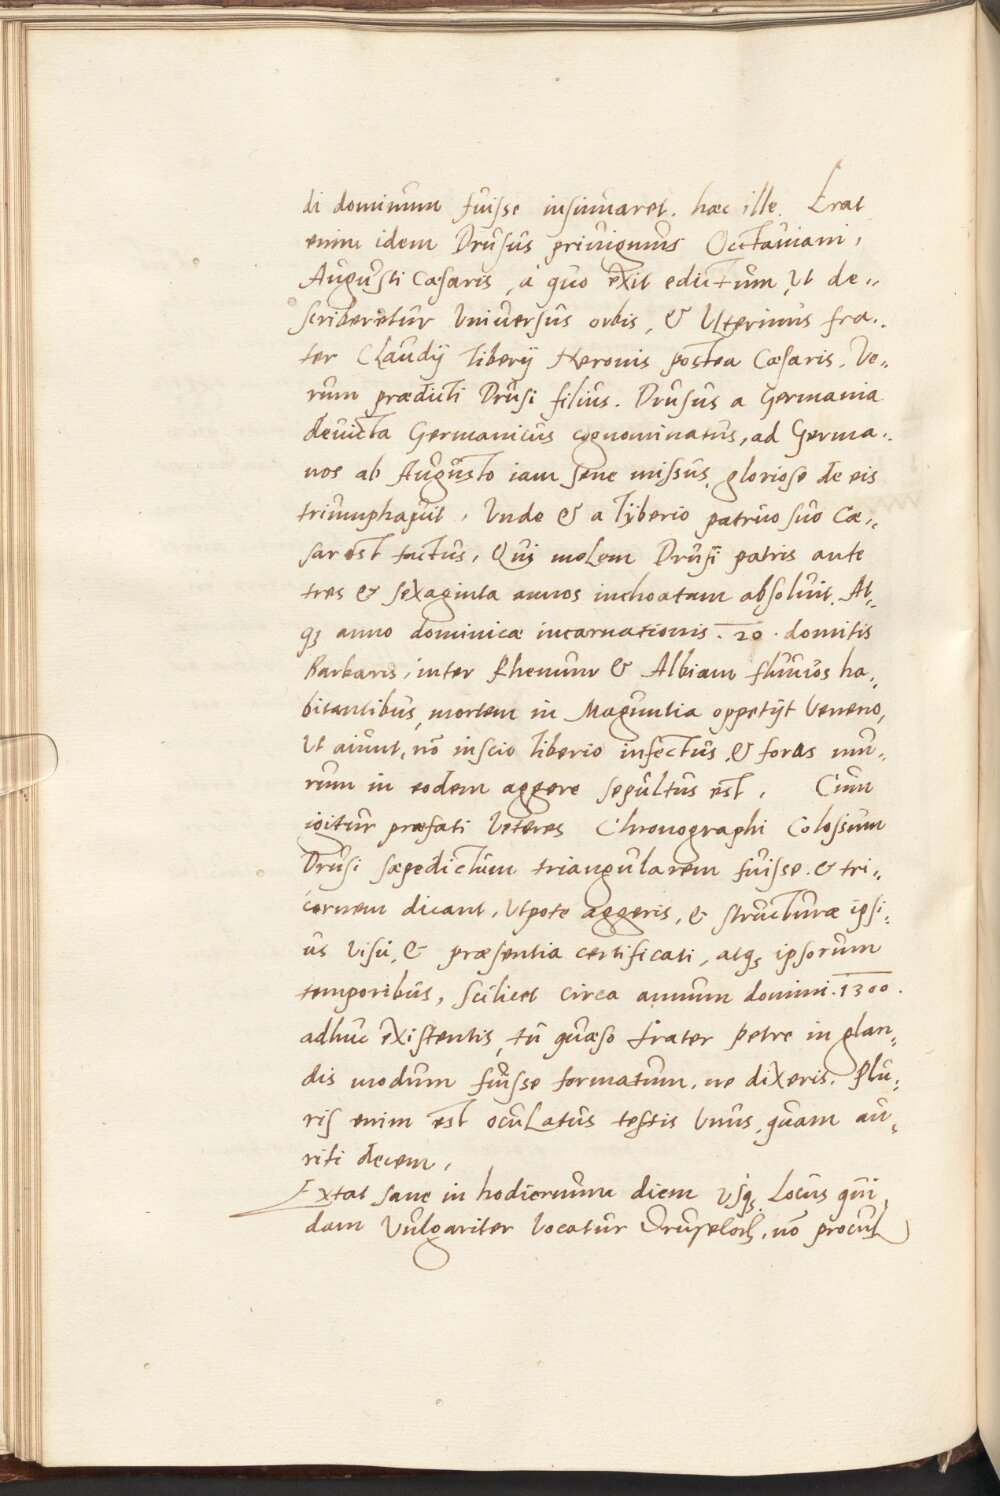 di dominum fuisse insinuaret. hæc ille. Erat
enim idem Drusus priuignus Octauiani,
Augusti Cæsaris, á quo exit edictum, Ut de-
scriberetur Vniversus orbis, & Uterinus fra-
ter Claudij Tiberij Neronis postea Cæsaris. Ve-
rum prædicti Drusi filius. Drusus a Germania
devicta Germanicus cognominatus, ad Germa-
nos ab Augusto iam sene missus, gloriose de eis
triumphauit, Vnde & a Tÿberio patruo suo Cæ-
sar est factus, Qui molem Drusi patris ante
tres & sexaginta annos inchoatam absoluit. At-
qꝫ anno dominicæ incarnationis. 20. domitis
Barbaris, inter Rhenum & Albiam fluuios ha-
bitantibus, mortem in Maguntia oppetijt Veneno,
Ut aiunt, nō inscio Tiberio infectus, & foras mu-
rum in eodem aggere sepultus est. Cum
igitur præfati Veteres Chronographi Colossum
Drusi sæpedictum triangularem fuisse. & tri-
cornem dicant, Utpote aggeris, & structuræ ipsi-
us Visu, & præsentia certificati, atqꝫ ipsorum
temporibus, scilicet circa annum domini. 1300.
adhuc existentis, tu quæso frater Petre in glan-
dis modum fuisse formatum, ne dixeris. Plu-
ris enim est oculatus testis Vnus, quam au-
riti decem,
Extat sane in hodiernum diem Usqꝫ Locus qui-
dam Vulgariter Vocatur Druseloch, nō procul